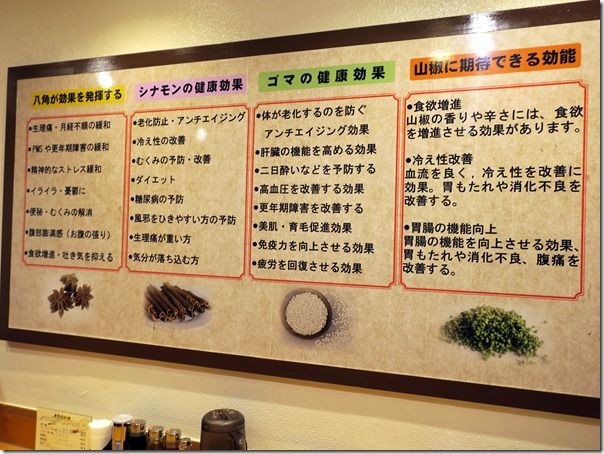 八角が効果を発揮する
●生理痛・月経不順の緩和
●PMSや更年期障害の緩和
●精神的なストレス緩和
●イライラ・憂鬱に
●便秘・むくみの解消
●腹部膨満感（お腹の張り）
●食欲増進・吐き気を抑える
シナモンの健康効果
●老化防止・アンチエイジング
●冷え性の改善
●むくみの予防・改善
●ダイエット
●糖尿病の予防
●風邪をひきやすい方の予防
●生理痛が重い方
●気分が落ち込む方
ゴマの健康効果
●体が老化するのを防ぐ
アンチエイジング効果
●肝臓の機能を高める効果
●二日酔いなどを予防する
●高血圧を改善する効果
●更年期障害を改善する
●美肌・育毛促進効果
●免疫力を向上させる効果
●疲労を回復させる効果
山椒に期待できる効能
●食欲増進
山椒の香りや辛さには、食欲
を増進させる効果があります。
●冷え性改善
血流を良く，冷え性を改善に
効果。胃もたれや消化不良を
改善する。
●胃腸の機能向上
胃腸の機能を向上させる効果、
胃もたれや消化不良、腹痛を
改善する。